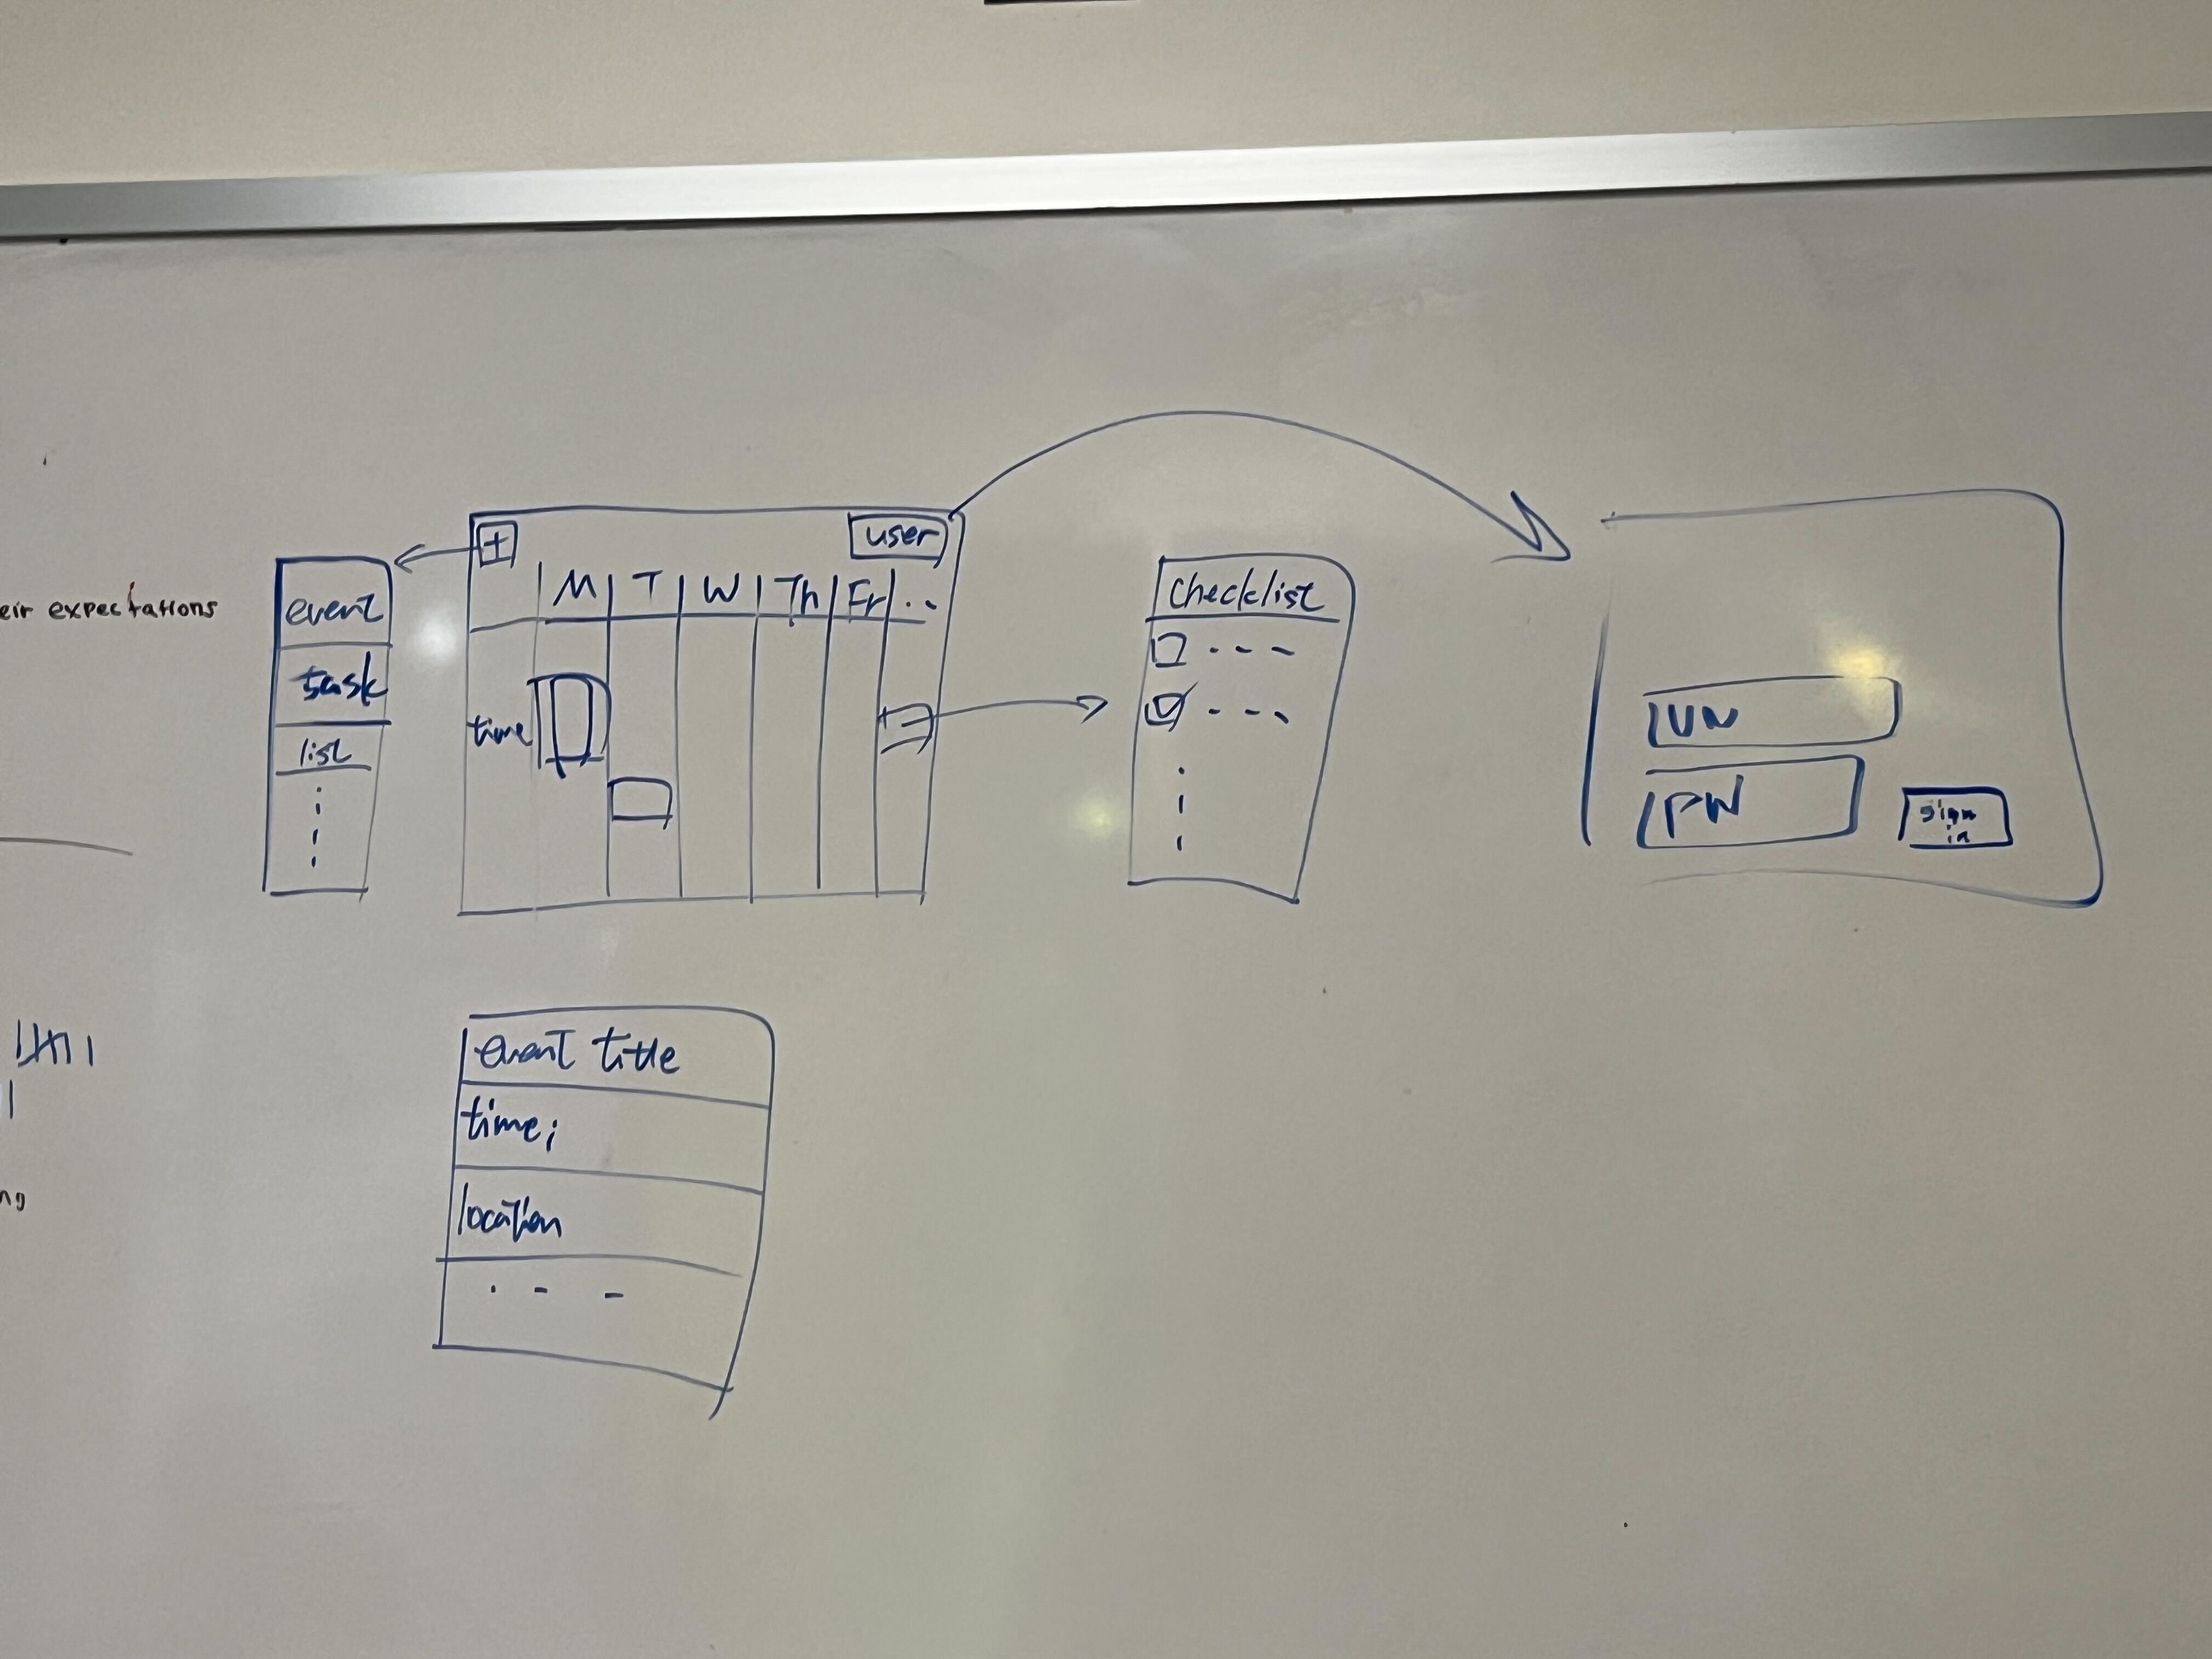 eir expectations
ng
event
task
list
+
user
M T W Th Fr ..
time
checklist
UN
PW
sign
in
event title
time;
location